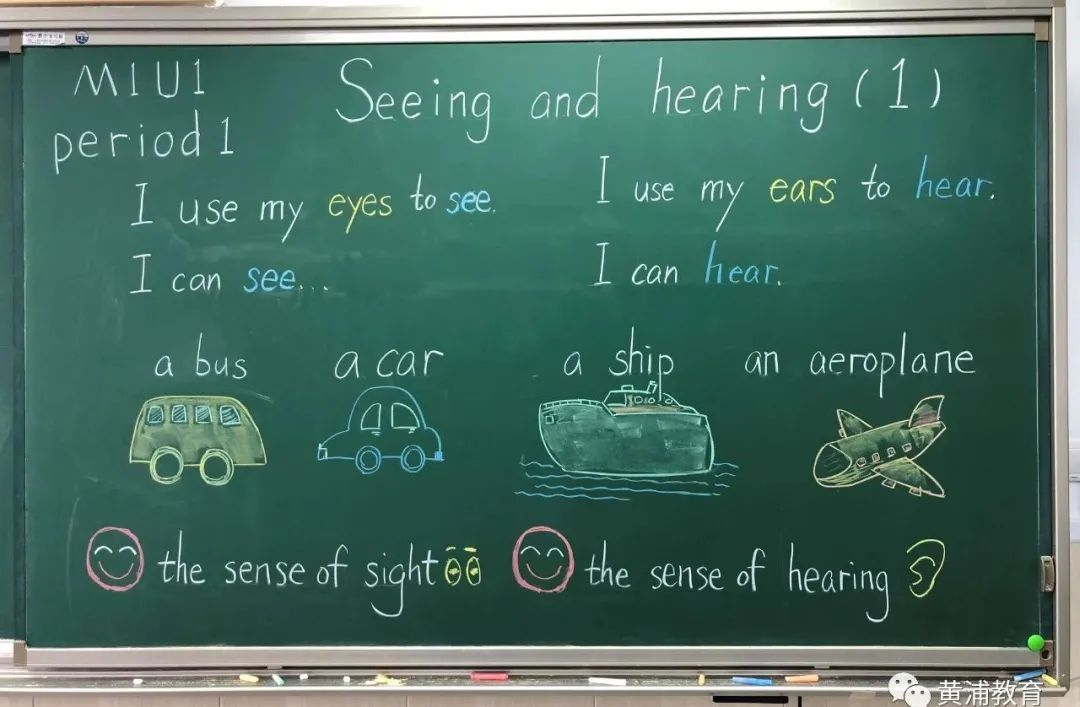 M1U1
Seeing and hearing (1)
period 1
I use my eyes to see.
I use my ears to hear.
I can see...
I can hear.
a bus
a car
a ship
an aeroplane
the sense of sight
the sense of hearing
黄浦教育